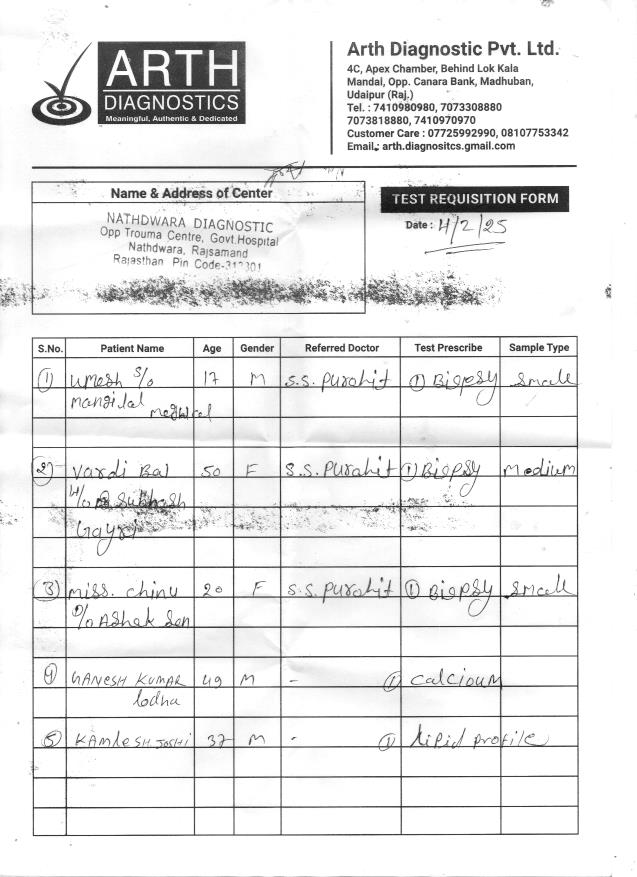 ARTH
DIAGNOSTICS
Meaningful, Authentic & Dedicated
Arth Diagnostic Pvt. Ltd.
4C, Apex Chamber, Behind Lok Kala
Mandal, Opp. Canara Bank, Madhuban,
Udaipur (Raj.)
Tel. : 7410980980, 7073308880
7073818880, 7410970970
Customer Care : 07725992990, 08107753342
Email. : arth.diagnositcs.gmail.com
Name & Address of Center
NATHDWARA DIAGNOSTIC
Opp Trouma Centre, Govt.Hospital
Nathdwara, Rajsamand
Rajasthan Pin Code-313301
TEST REQUISITION FORM
Date : 4/2/25
S.No. Patient Name Age Gender Referred Doctor Test Prescribe Sample Type
1 Umesh S/o 17 M S.S. Purohit 1 Biopsy Small
mangilal
2 Vardi Bai 50 F S.S. Purohit 1 Biopsy Medium
W/o Subhash
Gayri
3 Miss. Chinu 20 F S.S. Purohit 1 Biopsy Small
D/o Ashok Sen
4 GANESH KUMAR 49 M - 1 Calcioum
lodha
5 KAMLESH JOSHI 37 M - 1 Lipid profile